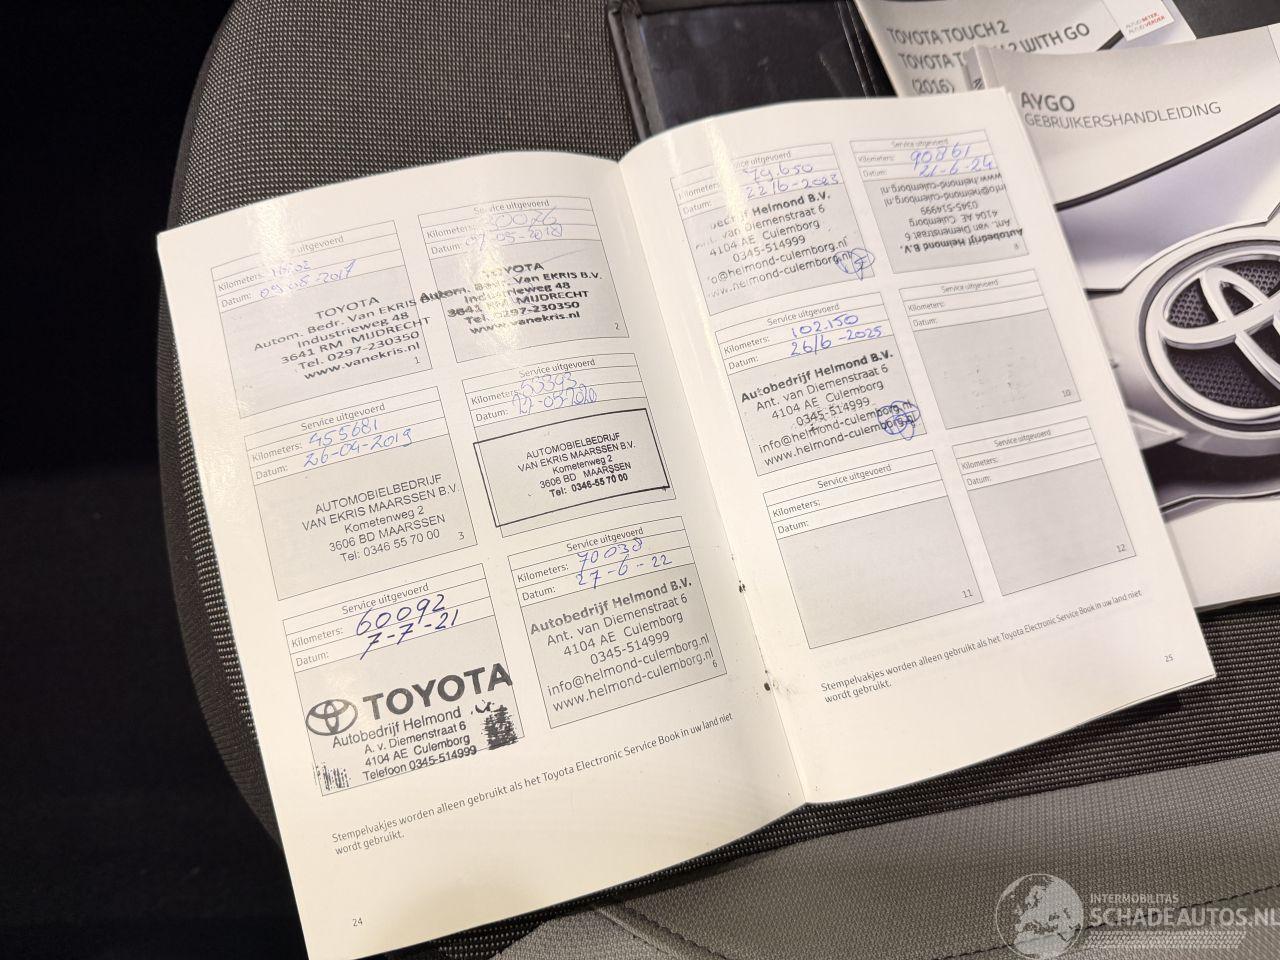 TOYOTA TOUCH 2
2 WITH GO
(2016)
AYGO
GEBRUIKERSHANDLEIDING
Service uitgevoerd
Kilometers:
Datum: 09-05-2017
TOYOTA
Autom. Bedr. Van EKRIS B.V.
Industrieweg 48
3641 RM MIJDRECHT
Tel. 0297-230350
www.vanekris.nl
1
Service uitgevoerd
Kilometers:
Datum: 07-05-2018
TOYOTA
Autom. Bedr. Van EKRIS B.V.
Industrieweg 48
3641 RM MIJDRECHT
Tel. 0297-230350
www.vanekris.nl
2
Service uitgevoerd
Kilometers: 455681
Datum: 26-04-2019
AUTOMOBIELBEDRIJF
VAN EKRIS MAARSSEN B.V.
Kometenweg 2
3606 BD MAARSSEN
Tel: 0346 55 70 00
3
Service uitgevoerd
Kilometers: 53393
Datum:
AUTOMOBIELBEDRIJF
VAN EKRIS MAARSSEN B.V.
Kometenweg 2
3606 BD MAARSSEN
Tel: 0346-55 70 00
Service uitgevoerd
Kilometers: 60092
Datum: 7-7-21
TOYOTA
Autobedrijf Helmond
A. v. Diemenstraat 6
4104 AE Culemborg
Telefoon 0345-514999
Service uitgevoerd
Kilometers: 70038
Datum: 27-6-22
Autobedrijf Helmond B.V.
Ant. van Diemenstraat 6
4104 AE Culemborg
0345-514999
info@helmond-culemborg.nl
www.helmond-culemborg.nl
6
Stempelvakjes worden alleen gebruikt als het Toyota Electronic Service Book in uw land niet
wordt gebruikt.
24
Service uitgevoerd
Kilometers: 79.650
Datum: 22/6-2023
bedrijf Helmond B.V.
Ant. van Diemenstraat 6
4104 AE Culemborg
0345-514999
info@helmond-culemborg.nl
www.helmond-culemborg.nl
Service uitgevoerd
Kilometers: 90861
Datum: 21-6-24
Autobedrijf Helmond B.V.
Ant. van Diemenstraat 6
4104 AE Culemborg
0345-514999
info@helmond-culemborg.nl
www.helmond-culemborg.nl
8
Service uitgevoerd
Kilometers: 102.150
Datum: 26/6-2025
Autobedrijf Helmond B.V.
Ant. van Diemenstraat 6
4104 AE Culemborg
0345-514999
info@helmond-culemborg.nl
www.helmond-culemborg.nl
Service uitgevoerd
Kilometers:
Datum:
10
Service uitgevoerd
Kilometers:
Datum:
11
Service uitgevoerd
Kilometers:
Datum:
12
Stempelvakjes worden alleen gebruikt als het Toyota Electronic Service Book in uw land niet
wordt gebruikt.
25
INTERMOBILITAS
SCHADEAUTOS.NL